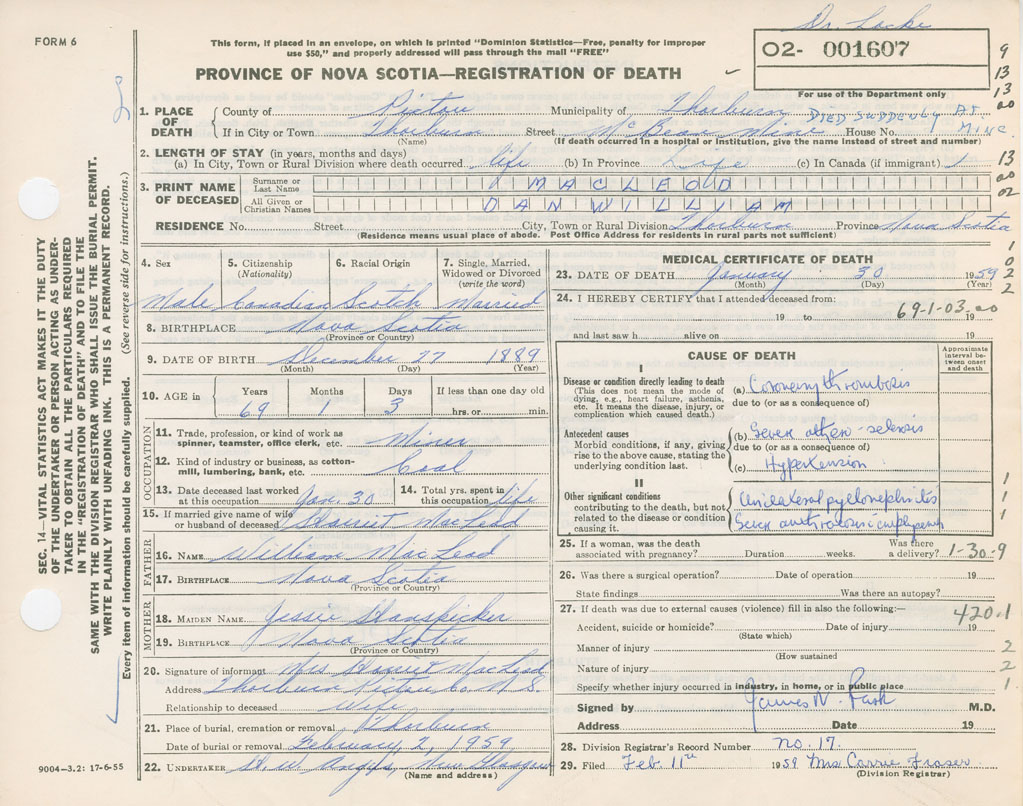 Dr. Locke
FORM 6
This form, if placed in an envelope, on which is printed "Dominion Statistics—Free, penalty for improper
use $50," and properly addressed will pass through the mail "FREE"
O2- 001607
For use of the Department only
PROVINCE OF NOVA SCOTIA—REGISTRATION OF DEATH
9
13
13
00
1. PLACE OF DEATH
County of Pictou Municipality of Thorburn DIED SUDDENLY AT MINE
If in City or Town Thorburn Street McBean Mine House No.
(Name) (If death occurred in a hospital or institution, give the name instead of street and number)
2. LENGTH OF STAY (in years, months and days)
(a) In City, Town or Rural Division where death occurred life (b) In Province Life (c) In Canada (if immigrant)
13
00
02
3. PRINT NAME OF DECEASED
Surname or Last Name MACLEOD
All Given or Christian Names DAN WILLIAM
RESIDENCE No. Street City, Town or Rural Division Thorburn Province Nova Scotia
(Residence means usual place of abode. Post Office Address for residents in rural parts not sufficient)
1
0
2
2
4. Sex 5. Citizenship (Nationality) 6. Racial Origin 7. Single, Married, Widowed or Divorced (write the word)
Male Canadian Scotch Married
8. BIRTHPLACE Nova Scotia
(Province or Country)
9. DATE OF BIRTH December 27 1889
(Month) (Day) (Year)
10. AGE in Years Months Days If less than one day old
69 1 3 hrs. or min.
OCCUPATION
11. Trade, profession, or kind of work as spinner, teamster, office clerk, etc. Miner
12. Kind of industry or business, as cotton-mill, lumbering, bank, etc. Coal
13. Date deceased last worked at this occupation Jan. 30 14. Total yrs. spent in this occupation life
15. If married give name of wife or husband of deceased Harriet MacLeod
FATHER
16. NAME William MacLeod
17. BIRTHPLACE Nova Scotia
(Province or Country)
MOTHER
18. MAIDEN NAME Jessie
19. BIRTHPLACE Nova Scotia
(Province or Country)
20. Signature of informant Mrs Harriet MacLeod
Address Thorburn Pictou Co. N.S.
Relationship to deceased Wife
21. Place of burial, cremation or removal Thorburn
Date of burial or removal February 2, 1959
22. UNDERTAKER New Glasgow
(Name and address)
9004-3.2: 17-6-55
MEDICAL CERTIFICATE OF DEATH
23. DATE OF DEATH January 30 1959
(Month) (Day) (Year)
24. I HEREBY CERTIFY that I attended deceased from:
19 to 19
69-1-03 00
and last saw h alive on 19
CAUSE OF DEATH
Approximate interval between onset and death
I
Disease or condition directly leading to death
(This does not mean the mode of dying, e.g., heart failure, asthenia, etc. It means the disease, injury, or complication which caused death.)
(a) Coronary thrombosis
due to (or as a consequence of)
Antecedent causes
Morbid conditions, if any, giving rise to the above cause, stating the underlying condition last.
(b) Severe
due to (or as a consequence of)
(c) Hypertension
II
Other significant conditions
contributing to the death, but not related to the disease or condition causing it.
Unilateral pyelonephritis
Severe
1
1
1
1
25. If a woman, was the death associated with pregnancy? Duration weeks. Was there a delivery?
1-30-9
26. Was there a surgical operation? Date of operation 19
State findings Was there an autopsy?
27. If death was due to external causes (violence) fill in also the following:—
420.1
Accident, suicide or homicide? Date of injury 19
(State which)
Manner of injury 2
(How sustained)
Nature of injury 2
Specify whether injury occurred in industry, in home, or in public place 1
Signed by James W. Park M.D.
Address Date 19
28. Division Registrar's Record Number no. 17.
29. Filed Feb. 11th 1959 Mrs Carrie Fraser
(Division Registrar)
SEC. 14—VITAL STATISTICS ACT MAKES IT THE DUTY
OF THE UNDERTAKER OR PERSON ACTING AS UNDER-
TAKER TO OBTAIN ALL THE PARTICULARS REQUIRED
IN THE "REGISTRATION OF DEATH" AND TO FILE THE
SAME WITH THE DIVISION REGISTRAR WHO SHALL ISSUE THE BURIAL PERMIT.
WRITE PLAINLY WITH UNFADING INK. THIS IS A PERMANENT RECORD.
Every item of information should be carefully supplied. (See reverse side for instructions.)